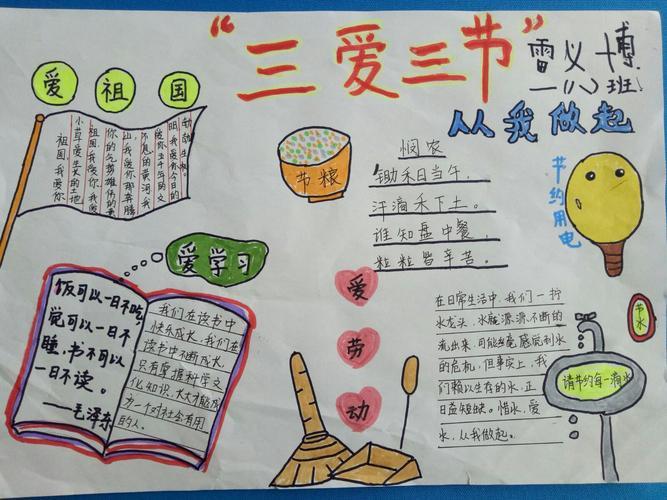 “三爱三节”
雷义博
一(八)班
从我做起
爱祖国
小草爱生长的土地
祖国,我爱你
悯农
锄禾日当午,
汗滴禾下土。
谁知盘中餐,
粒粒皆辛苦。
节粮
节约用电
爱学习
饭可以一日不吃,
觉可以一日不
睡,书不可以
一日不读。
——毛泽东
我们在读书中
快乐成长,我们在
读书中不断成长,
只有掌握科学文
化知识,大才能成
为一个对社会有用
的人。
爱
劳
动
在日常生活中,我们一拧
水龙头,水就源源不断的
流出来,可能丝毫感觉到水
的危机,但事实上,我
们赖以生存的水,正
日益短缺。惜水,爱
水,从我做起。
节水
请节约每一滴水